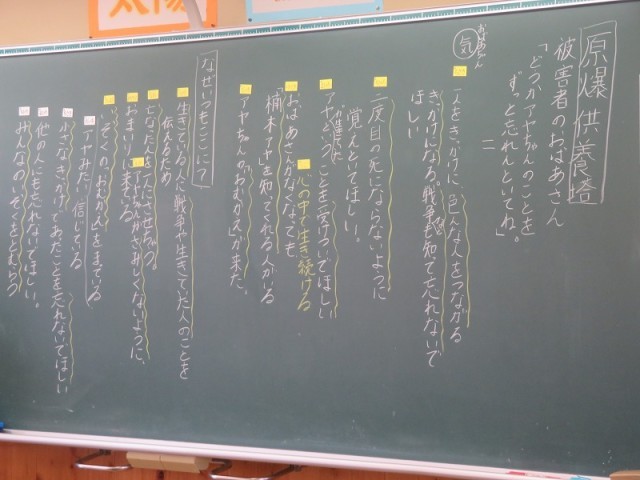 原爆供養塔
被害者のおばあさん
「どうかアヤちゃんのことを
ずっと忘れんといてね」。
＝
おばあさん
気
人をきっかけに、色んな人をつながる
きっかけになる。戦争も知て忘れないで
ほしい
二度目の死にならないように
覚えといてほしい。
アヤということを受けついでほしいと
心の中で生き続ける
おばあさんがなくなっても
「楠木アヤ」を知ってくれる人がいる
アヤちゃんの「おむかえ」が来た。
なぜいつもここにて
生きている人に戦争や生きていた人のことを
伝えるため
おまいりに来ている
アヤちゃんがさみしくないように、
アヤみたい信じている
小さなきっかけであたことを忘れないでほしい
他の人にも忘れないでほしい。
みんなのいぞくをとむらう